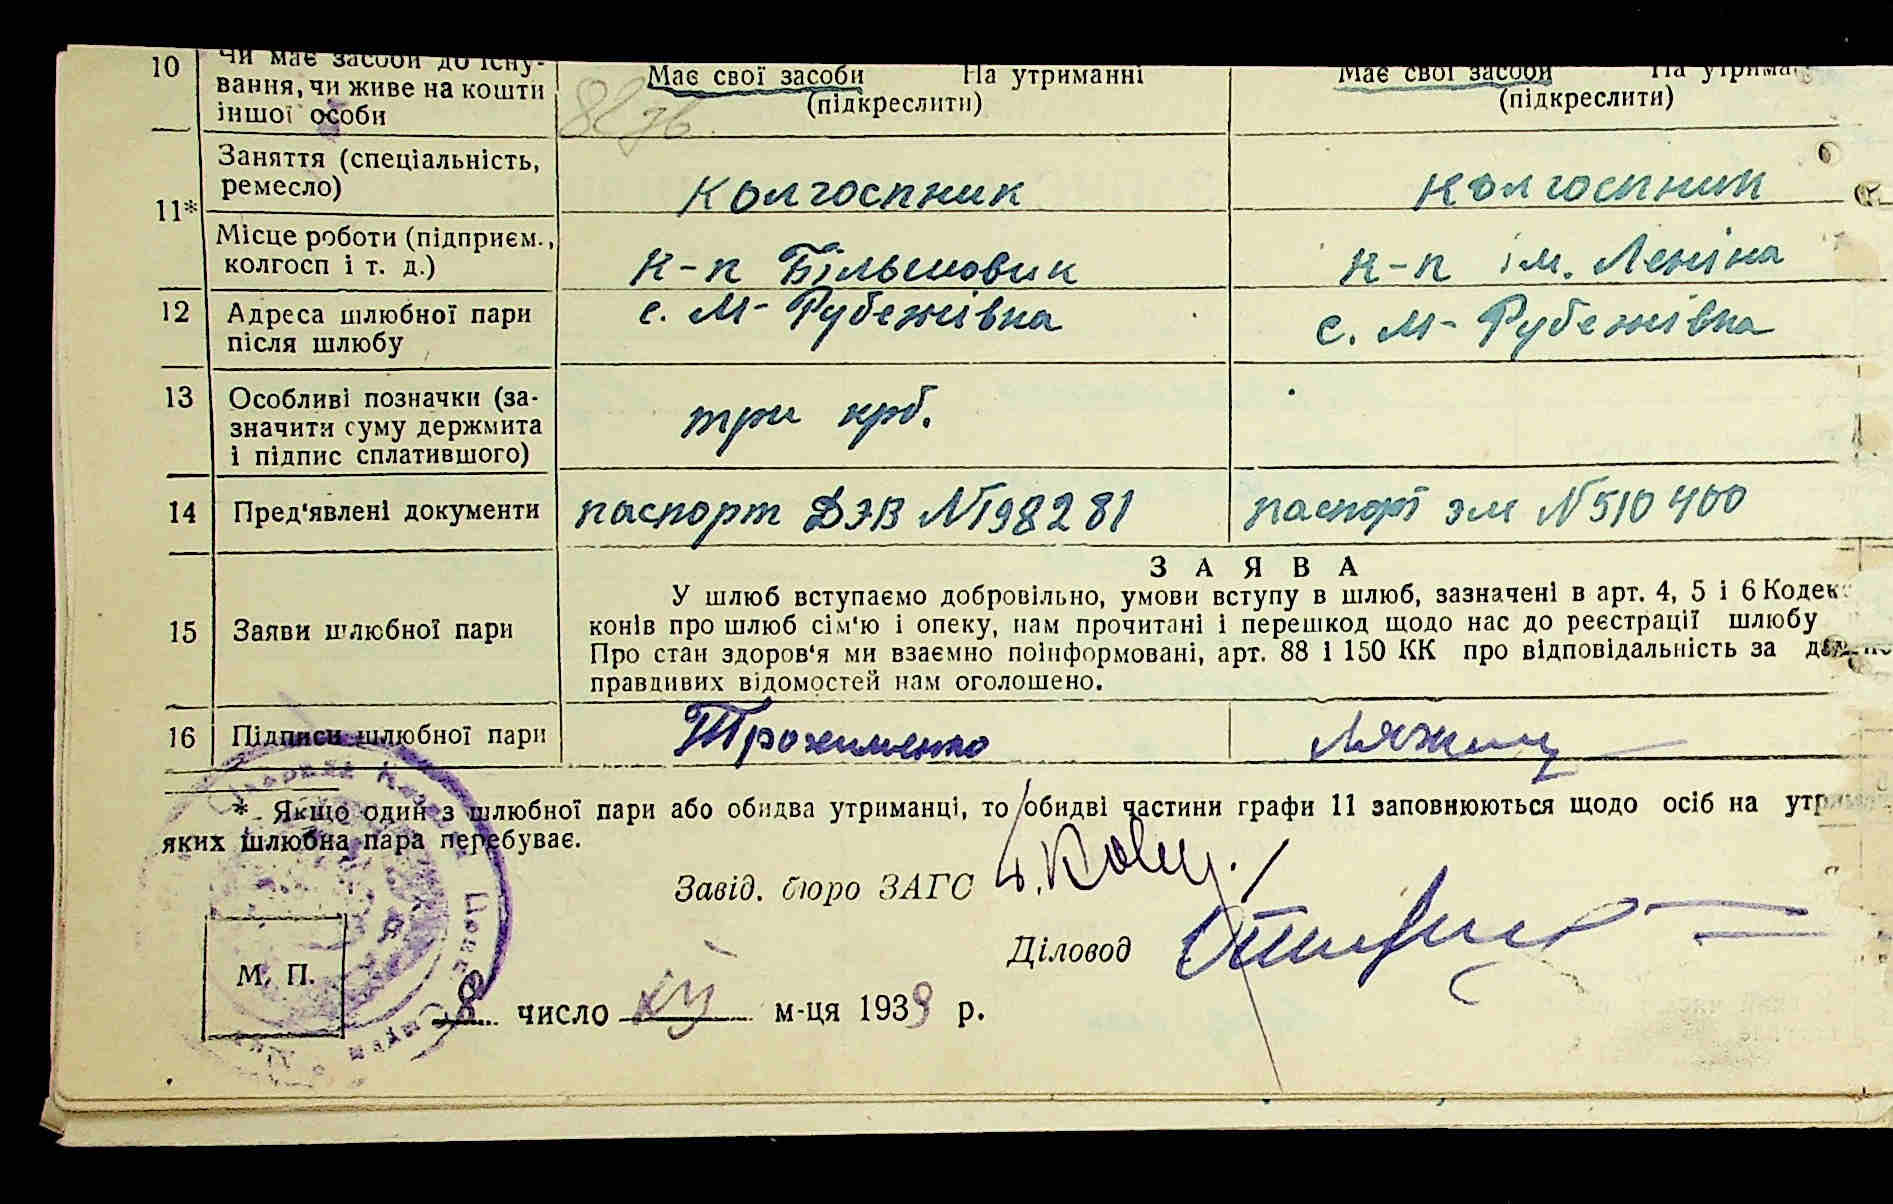 10 Чи має засоби до існу- Має свої засоби На утриманні Має свої засоби На утрима
вання, чи живе на кошти (підкреслити) (підкреслити)
іншої особи
11* Заняття (спеціальність,
ремесло) Колгоспник Колгоспник
Місце роботи (підприєм.,
колгосп і т. д.) к-п Більшовик к-п ім. Леніна
12 Адреса шлюбної пари с. М-Рубежівка с. М-Рубежівка
після шлюбу
13 Особливі позначки (за-
значити суму держмита три крб.
і підпис сплатившого)
14 Пред'явлені документи паспорт ДЭВ №198281 паспорт эм №510400
ЗАЯВА
У шлюб вступаємо добровільно, умови вступу в шлюб, зазначені в арт. 4, 5 і 6 Кодек
15 Заяви шлюбної пари конів про шлюб сім'ю і опеку, нам прочитані і перешкод щодо нас до реєстрації шлюбу
Про стан здоров'я ми взаємно поінформовані, арт. 88 і 150 КК про відповідальність за
правдивих відомостей нам оголошено.
16 Підписи шлюбної пари Трохименко
* Якщо один з шлюбної пари або обидва утриманці, то обидві частини графи 11 заповнюються щодо осіб на утр
яких шлюбна пара перебуває.
Завід. бюро ЗАГС
Діловод
М. П.
8 число XII м-ця 1939 р.